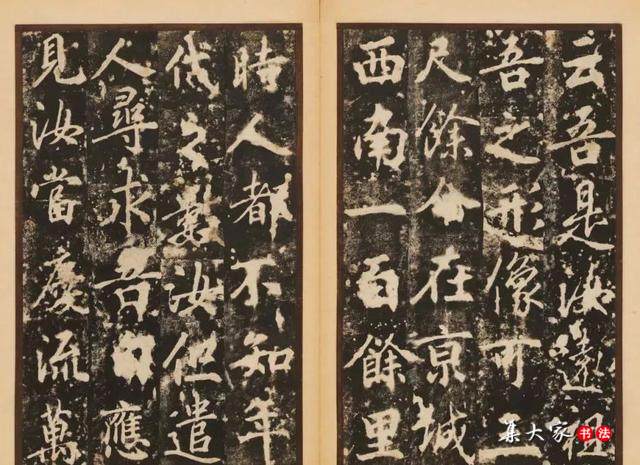 云吾是汝遠祖
吾之形像可三
尺餘今在京城
西南一百餘里
時人都不知年
代之數汝但遣
人尋求吾自應
見汝當慶流萬
集大家书法